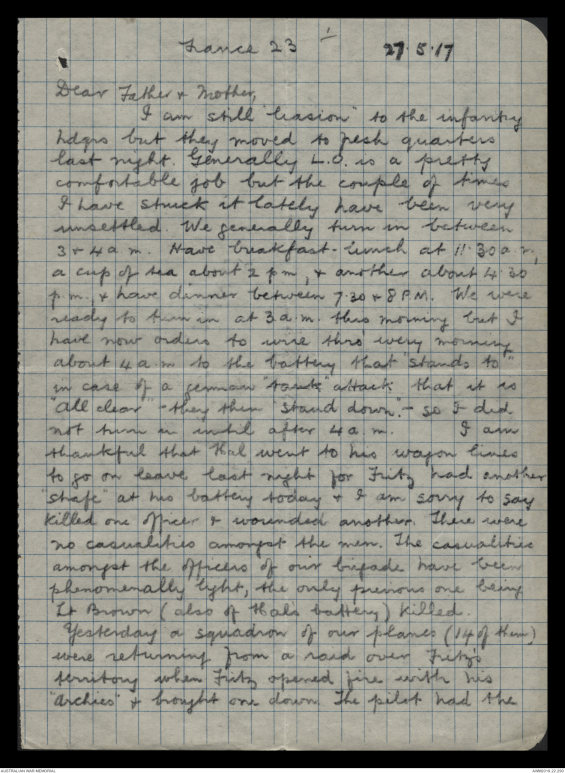 France 23 27.5.17
Dear Father & Mother,
I am still "liasion" to the infantry
hdqrs but they moved to fresh quarters
last night. Generally L.O. is a pretty
comfortable job but the couple of times
I have struck it lately have been very
unsettled. We generally turn in between
3 & 4 a.m. Have breakfast-lunch at 11.30 a.m,
a cup of tea about 2 pm, & another about 4.30
p.m. & have dinner between 7.30 & 8 P.M. We were
ready to turn in at 3 a.m. this morning but I
have now orders to wire thro every morning
about 4 a.m to the battery that "stands to"
in case of a german "tank" attack that it is
"All clear" - they then "stand down". - so I did
not turn in until after 4 a.m. I am
thankful that Hal went to his wagon lines
to go on leave last night for Fritz had another
"strafe" at his battery today & I am sorry to say
killed one officer & wounded another. There were
no casualities amongst the men. The casualities
amongst the officers of our brigade have been
phenomenally light, the only previous one being
Lt Brown (also of Hals battery) killed.
Yesterday a squadron of our planes (14 of them)
were returning from a raid over Fritz's
territory when Fritz opened fire with his
"Archies" & brought one down. The pilot had the
AUSTRALIAN WAR MEMORIAL